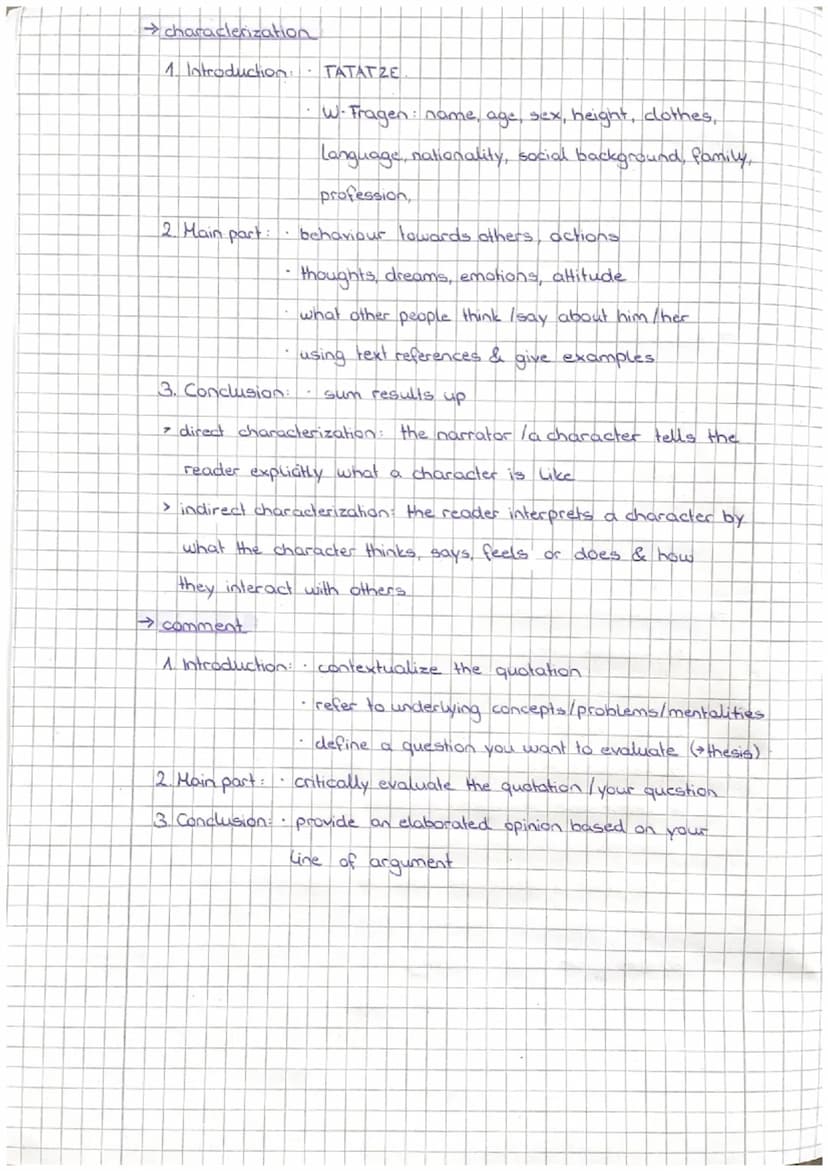 → characterization
1. Introduction: · TATATZE.
· W-Fragen: name, age, sex, height, clothes,
language, nationality, social background, family,
profession,
2. Main part: · behaviour towards others, actions
· thoughts, dreams, emotions, attitude
· what other people think /say about him/her
· using text references & give examples
3. Conclusion: · sum results up
> direct characterization: the narrator /a character tells the
reader explicitly what a character is like
> indirect characterization: the reader interprets a character by
what the character thinks, says, feels or does & how
they interact with others
→ comment
1. Introduction: · contextualize the quotation
· refer to underlying concepts/problems/mentalities
· define a question you want to evaluate (→thesis)
2. Main part: · critically evaluate the quotation /your question
3. Conclusion: · provide an elaborated opinion based on your
line of argument